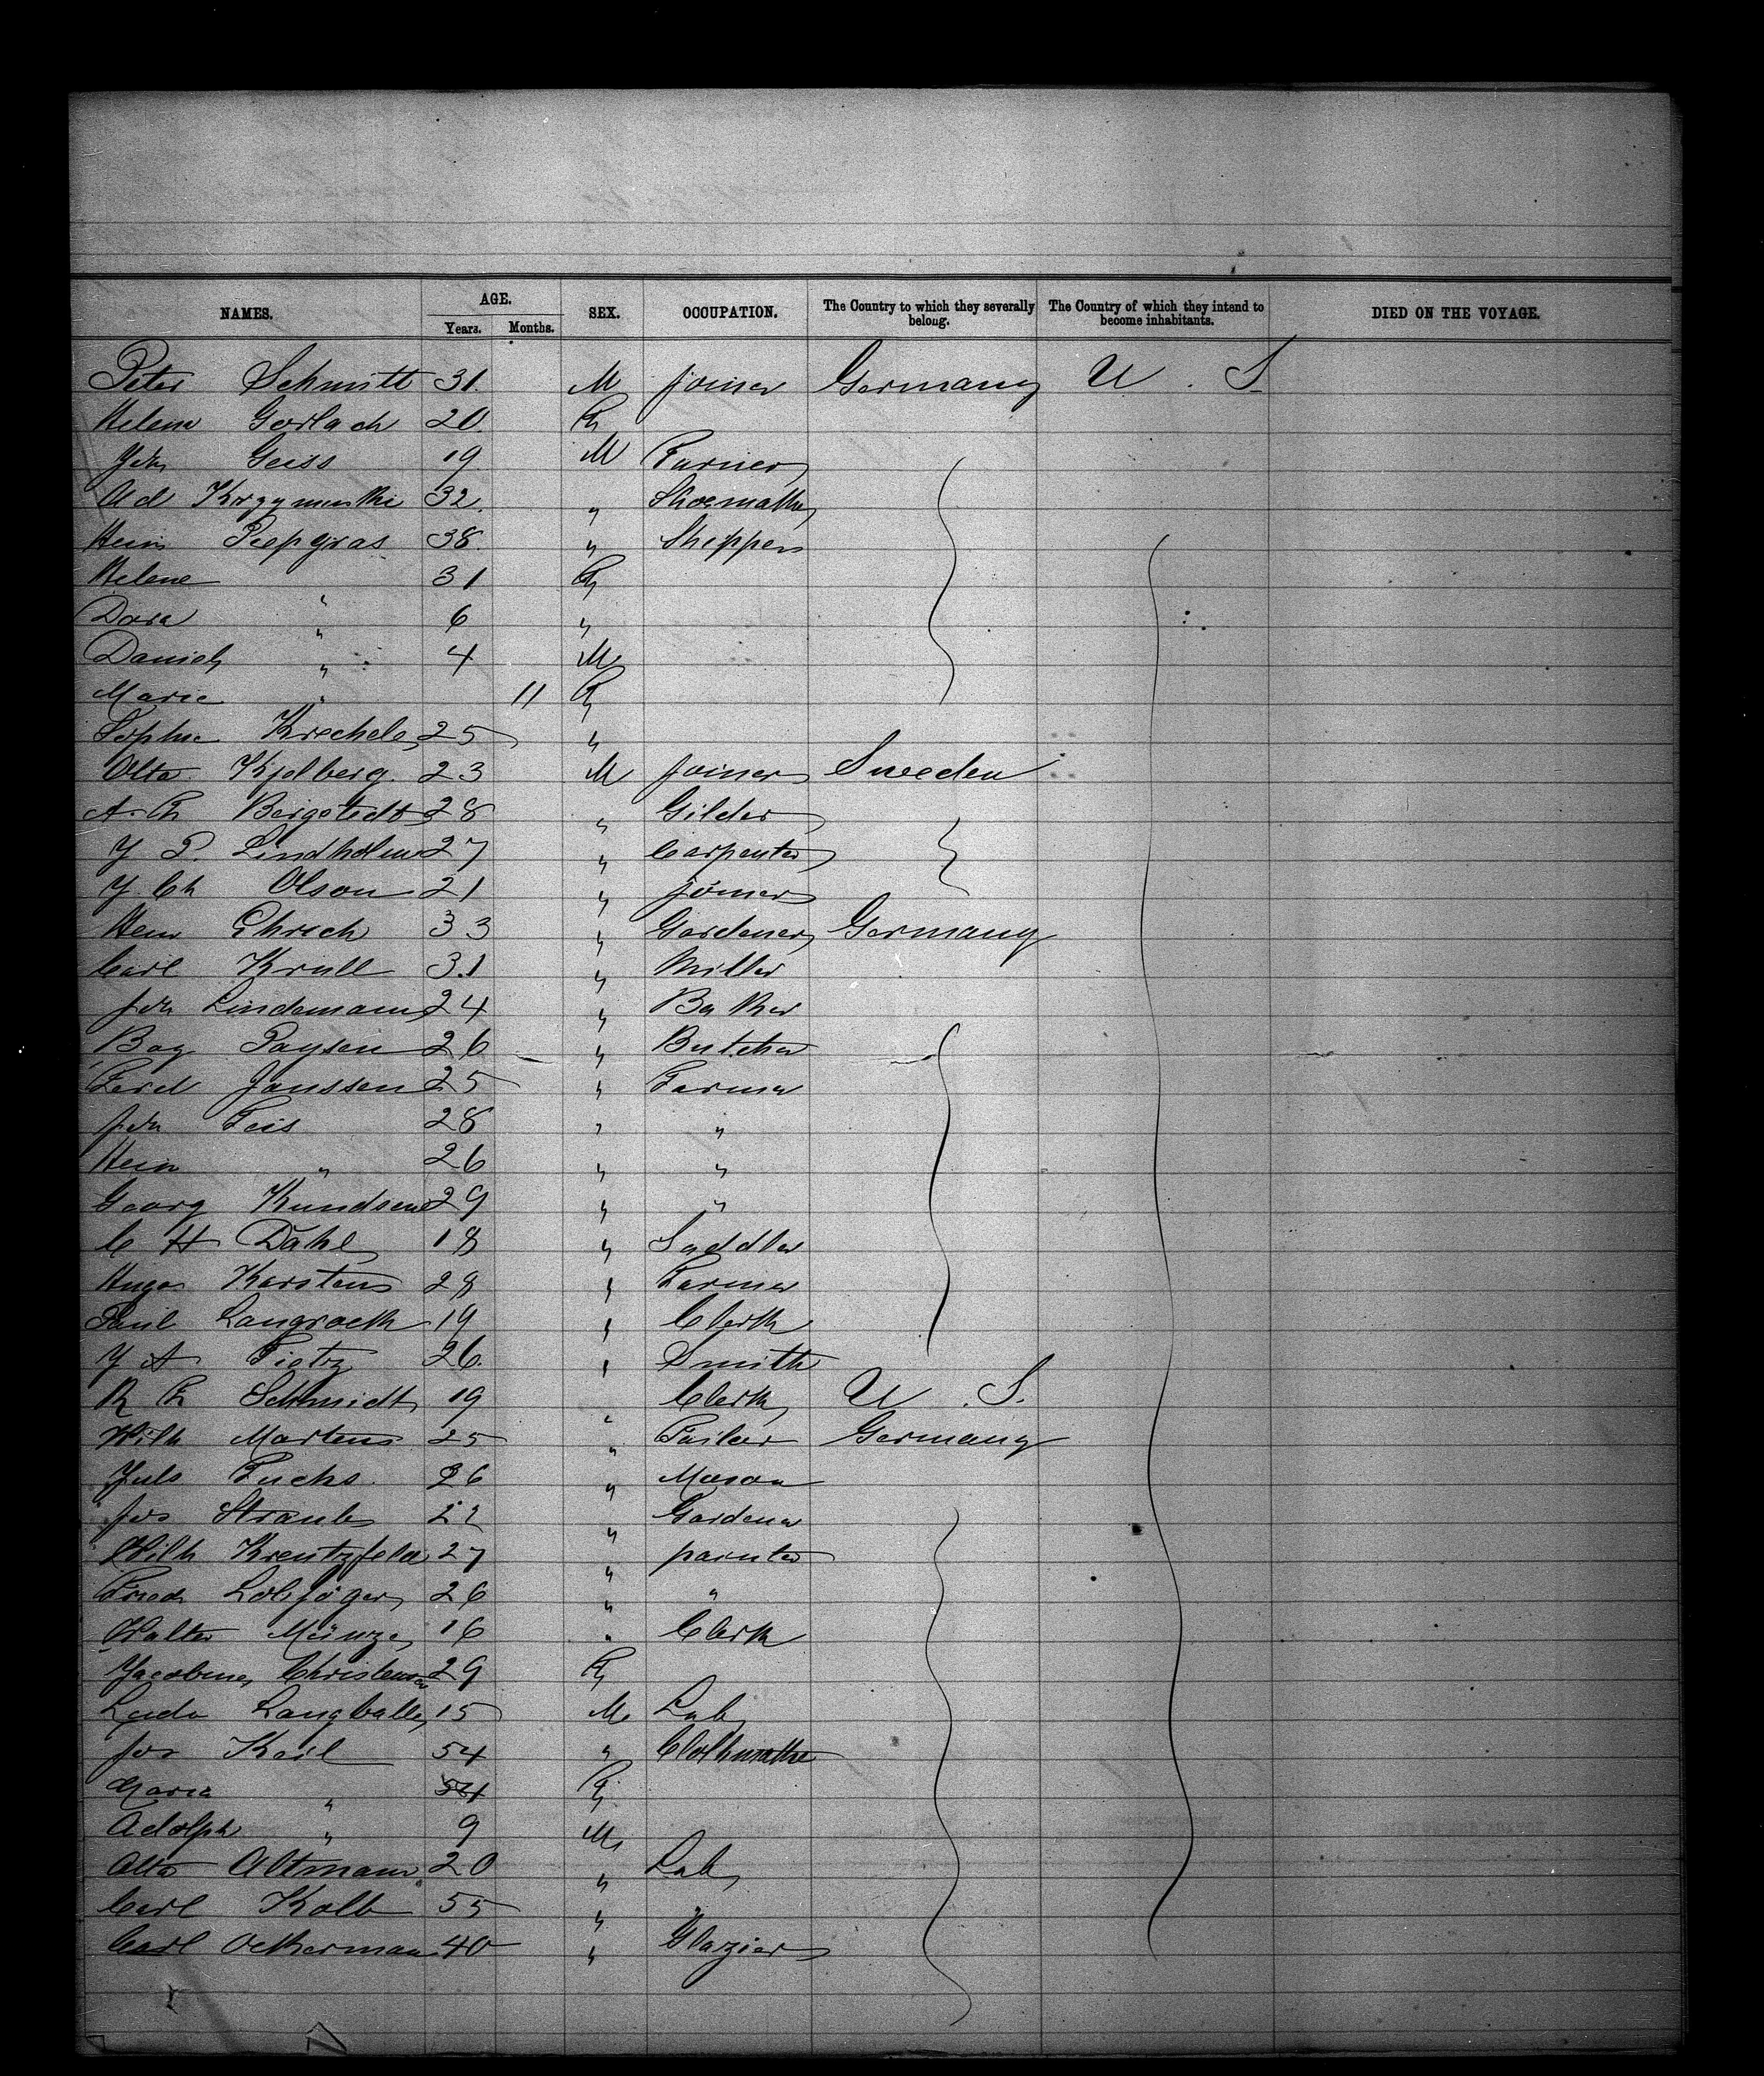 NAMES. AGE. SEX. OCCUPATION. The Country to which they severally belong. The Country of which they intend to become inhabitants. DIED ON THE VOYAGE.
Years. Months.
Peter Schmitt 31. M Joiner Germany U. S
Helene Gorlach 20. F
Joh Geiss 19 M Turner
Ad Krzyminski 32. " Shoemaker
Hein Piepgras 38. " Shipper
Helene " 31 F
Dora " 6 "
Daniel " 4 M
Marie " 11 F
Sophie Krechele 25 "
Otto Kjolberg. 23 M Joiner Sweden
A. F Bergstedt 28 " Gilder
J P. Lindholm 27 " Carpenter
J. Ch Olson 21 " Joiner
Hein Ehrich 33 " Gardener Germany
Carl Krull 31 " Miller
Joh Lindemann 24 " Baker
Boy Paysen 26 " Butcher
Ferd Janssen 25 " Farmer
Joh Feis 28 " "
Hein " 26 " "
Georg Kundsen 29 " "
C H Dahl 18 " Saddler
Hugo Karstens 28 " Farmer
Paul Langrock 19 " Clerk
J A Tietz 26. " Smith
R F Schmidt 19 " Clerk U. S.
Wilh Martens 25 " Tailor Germany
Juls Fuchs. 26 " Mason
Jos Straub 22 " Gardener
Wilh Kreutzfeld 27 " painter
Fried 26 " "
Walter Münze 16 " Clerk
Jacobine Christensen 29 F
Langballe 15 M Lab
Jos Keil 54 " Clothmaker
Maria " 54 F
Adolph " 9 M
Otto Altmann 20 " Lab
Carl Kolb 55 " "
Carl Ackerman 40 " Glazier